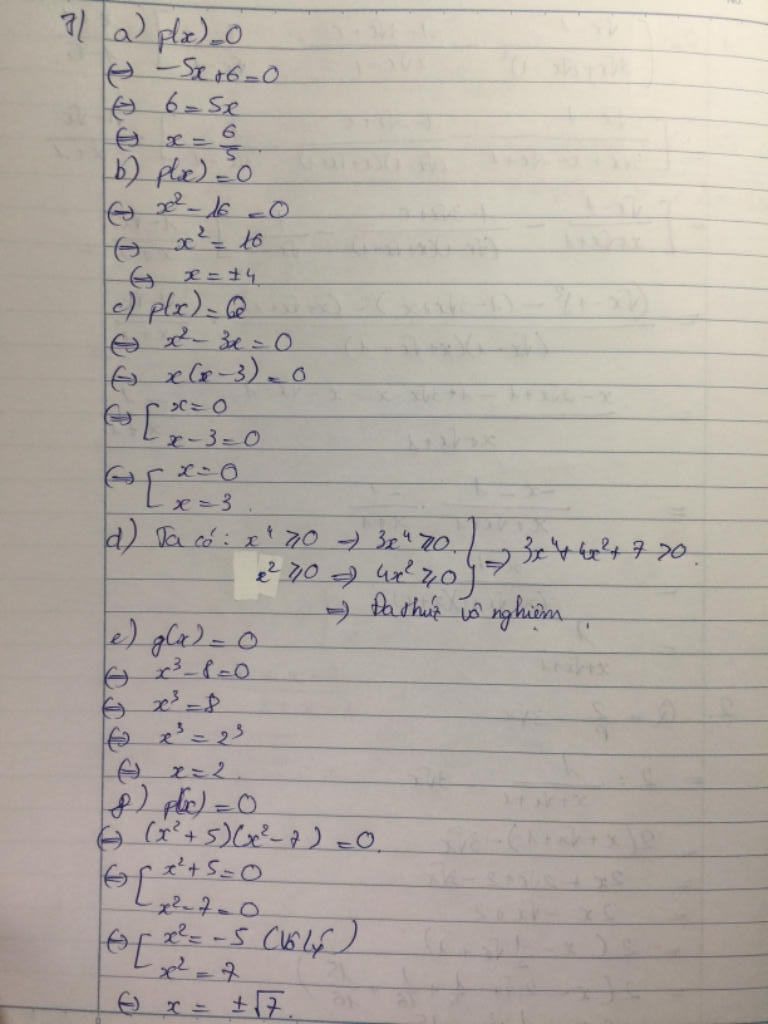 7/ a) p(x)=0
⇔ -5x+6=0
⇔ 6=5x
⇔ x = 6/5.
b) p(x)=0
⇔ x² - 16 = 0
⇔ x² = 16
⇔ x = ±4
c) p(x)=0
⇔ x² - 3x = 0
⇔ x(x-3) = 0
⇔ [ x=0
x-3=0
⇔ [ x=0
x=3.
d) Ta có: x⁴ ≥0 ⇒ 3x⁴ ≥0. } ⇒ 3x⁴+4x²+7 >0.
x² ≥0 ⇒ 4x² ≥0
⇒ Đa thức vô nghiệm.
e) g(x) = 0
⇔ x³-8=0
⇔ x³=8
⇔ x³ = 2³
⇔ x = 2.
g) p(x) = 0
⇔ (x²+5)(x²-7) = 0.
⇔ [ x²+5=0
x²-7=0
⇔ [ x² = -5 (Vô lý)
x² = 7
⇔ x = ±√7.